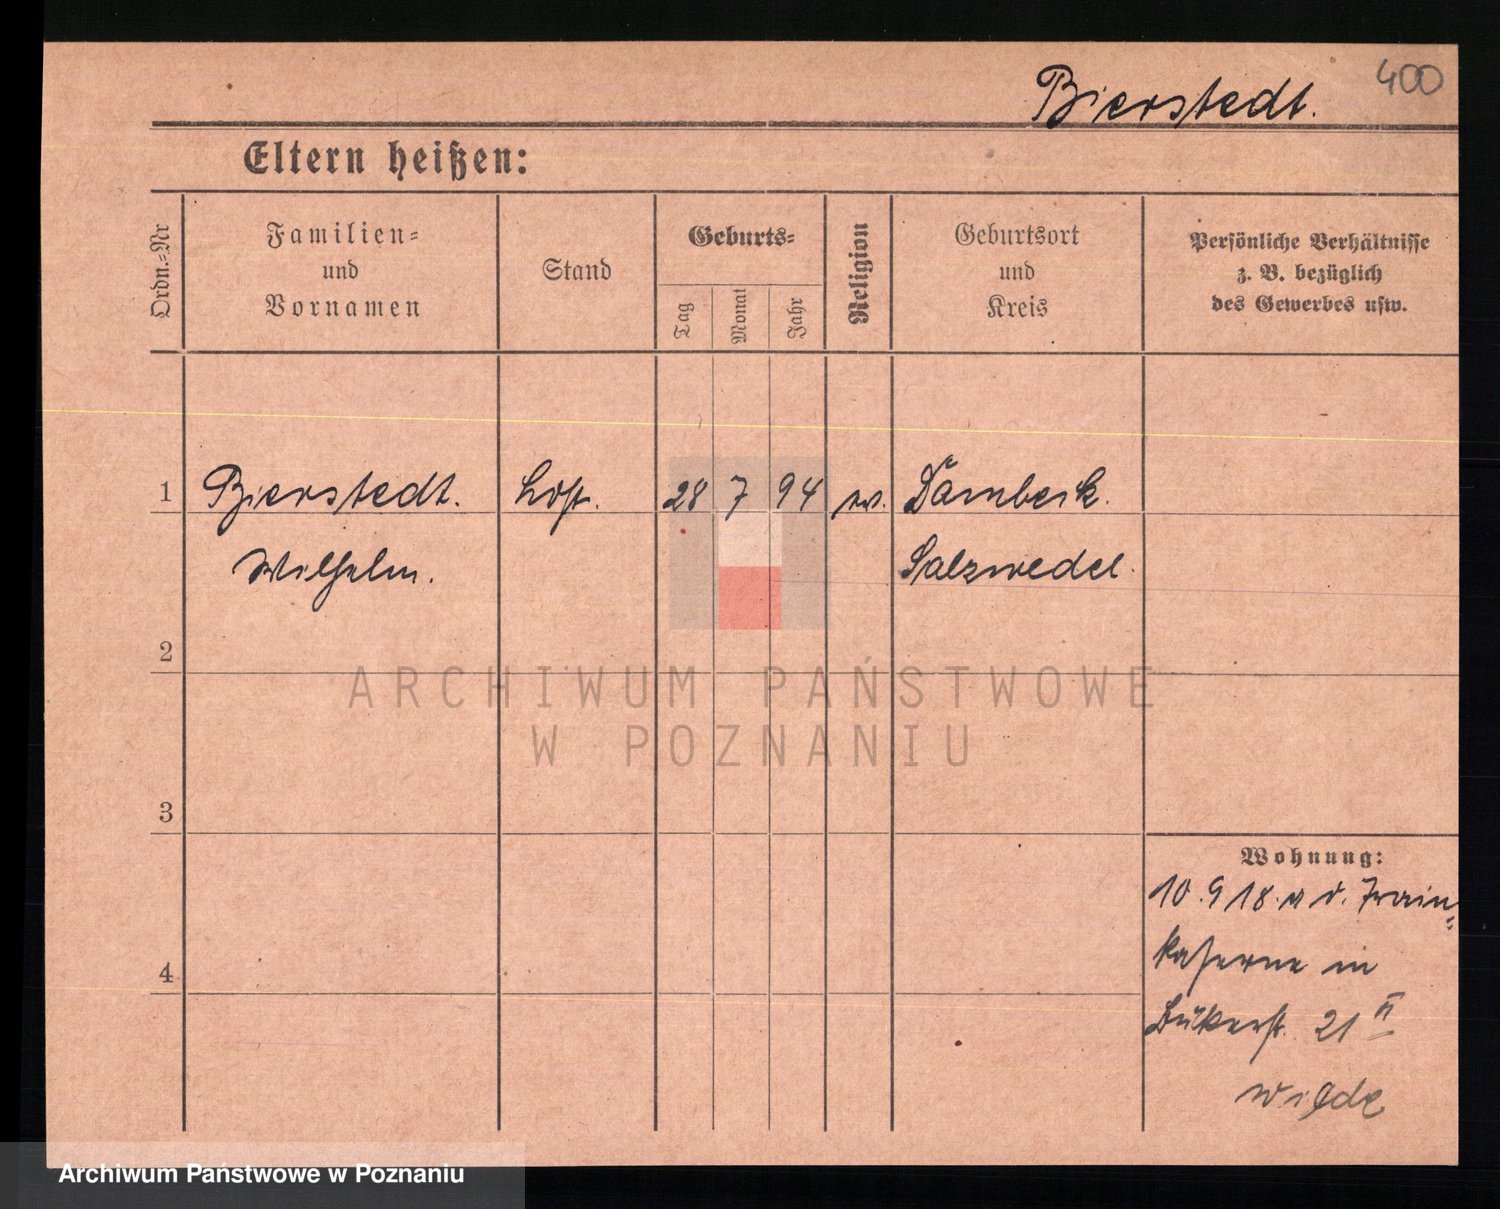 400
Bierstedt.
Eltern heißen:
Ordn.-Nr
Familien-
und
Vornamen
Stand
Geburts-
Tag
Monat
Jahr
Religion
Geburtsort
und
Kreis
Persönliche Verhältnisse
z. B. bezüglich
des Gewerbes usw.
1 Bierstedt. 28 7 94 Dambeck.
Wilhelm. Salzwedel.
2
3
4
Wohnung:
10.9 18. a d. Train-
kaserne in
21 II
ARCHIWUM PAŃSTWOWE
W POZNANIU
Archiwum Państwowe w Poznaniu